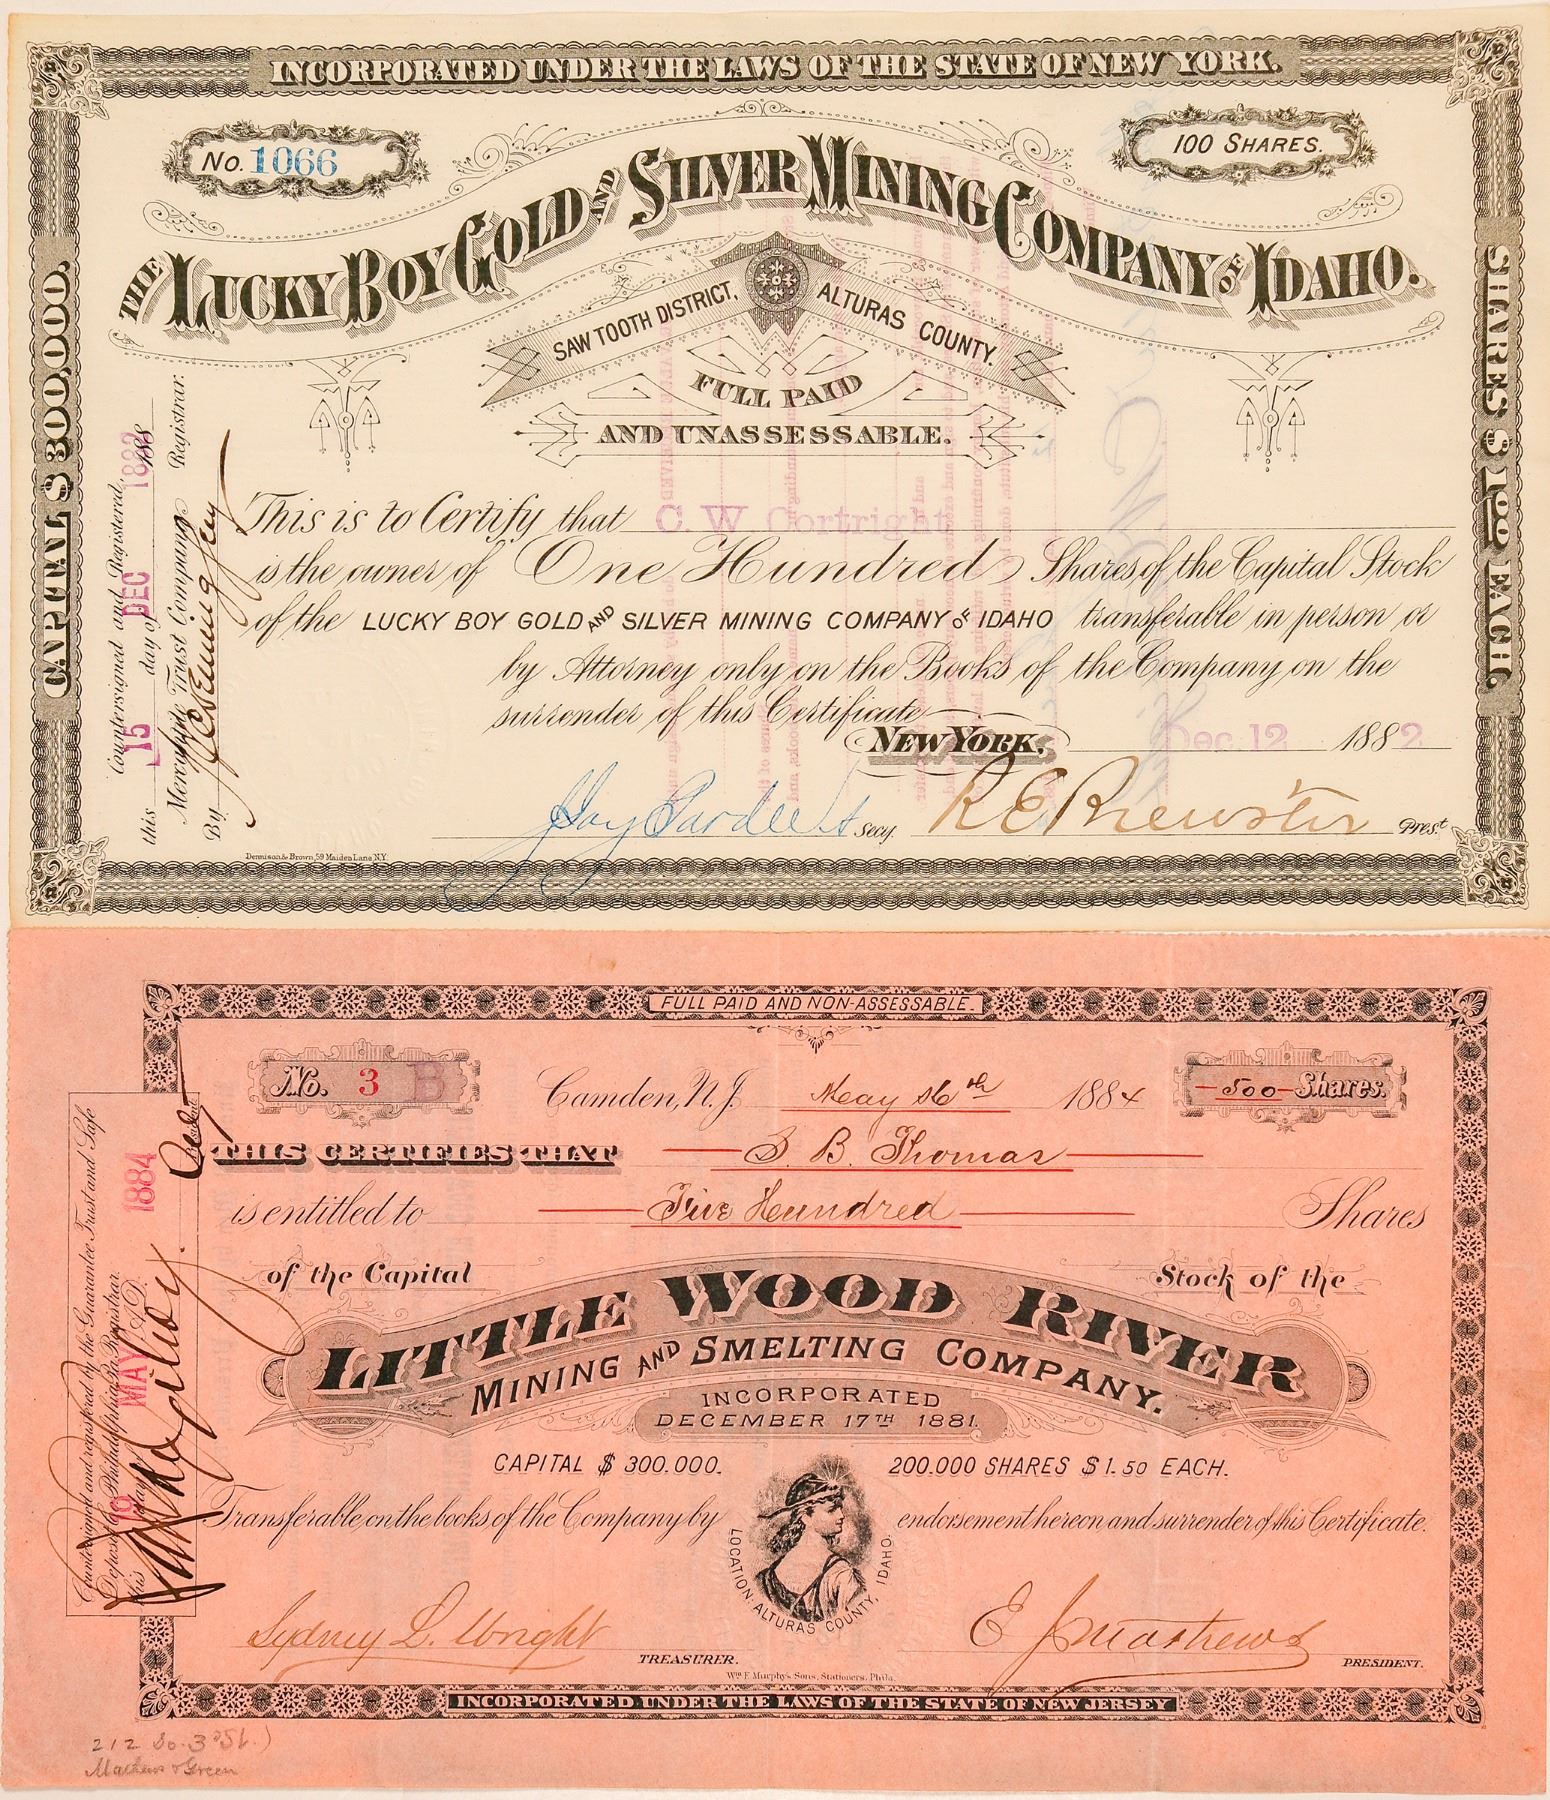 INCORPORATED UNDER THE LAWS OF THE STATE OF NEW YORK.
No. 1066
100 SHARES.
THE LUCKY BOY GOLD AND SILVER MINING COMPANY OF IDAHO.
SAW TOOTH DISTRICT, ALTURAS COUNTY.
FULL PAID
AND UNASSESSABLE.
CAPITAL $300,000.
SHARES $1.00 EACH.
Countersigned and Registered,
this 15 day of DEC 1882 188
Mercantile Trust Company Registrar.
By
This is to Certify that C. W. Cortright
is the owner of One Hundred Shares of the Capital Stock
of the LUCKY BOY GOLD AND SILVER MINING COMPANY OF IDAHO transferable in person or
by Attorney only on the Books of the Company on the
surrender of this Certificate
NEW YORK, Dec 12 1882
Secy. R E Brewster Prest.
Dennison & Brown, 59 Maiden Lane N.Y.
FULL PAID AND NON-ASSESSABLE.
No. 3 B
Camden, N.J. May 16th 1884
500 Shares.
THIS CERTIFIES THAT S. B. Thomas
is entitled to Five Hundred Shares
of the Capital Stock of the
LITTLE WOOD RIVER
MINING AND SMELTING COMPANY.
INCORPORATED
DECEMBER 17TH 1881.
CAPITAL $300.000. 200.000 SHARES $1.50 EACH.
Transferable on the books of the Company by endorsement hereon and surrender of this Certificate.
LOCATION, ALTURAS COUNTY, IDAHO.
Sydney L. Wright TREASURER.
E J Mathews PRESIDENT.
Wm. F. Murphy's Sons, Stationers, Phila.
INCORPORATED UNDER THE LAWS OF THE STATE OF NEW JERSEY
Countersigned and registered by the Guarantee Trust and Safe
Deposit Co. Philadelphia Pa Registrar.
this day MAY A.D. 1884
212 So. 3d St.
Mathews & Green